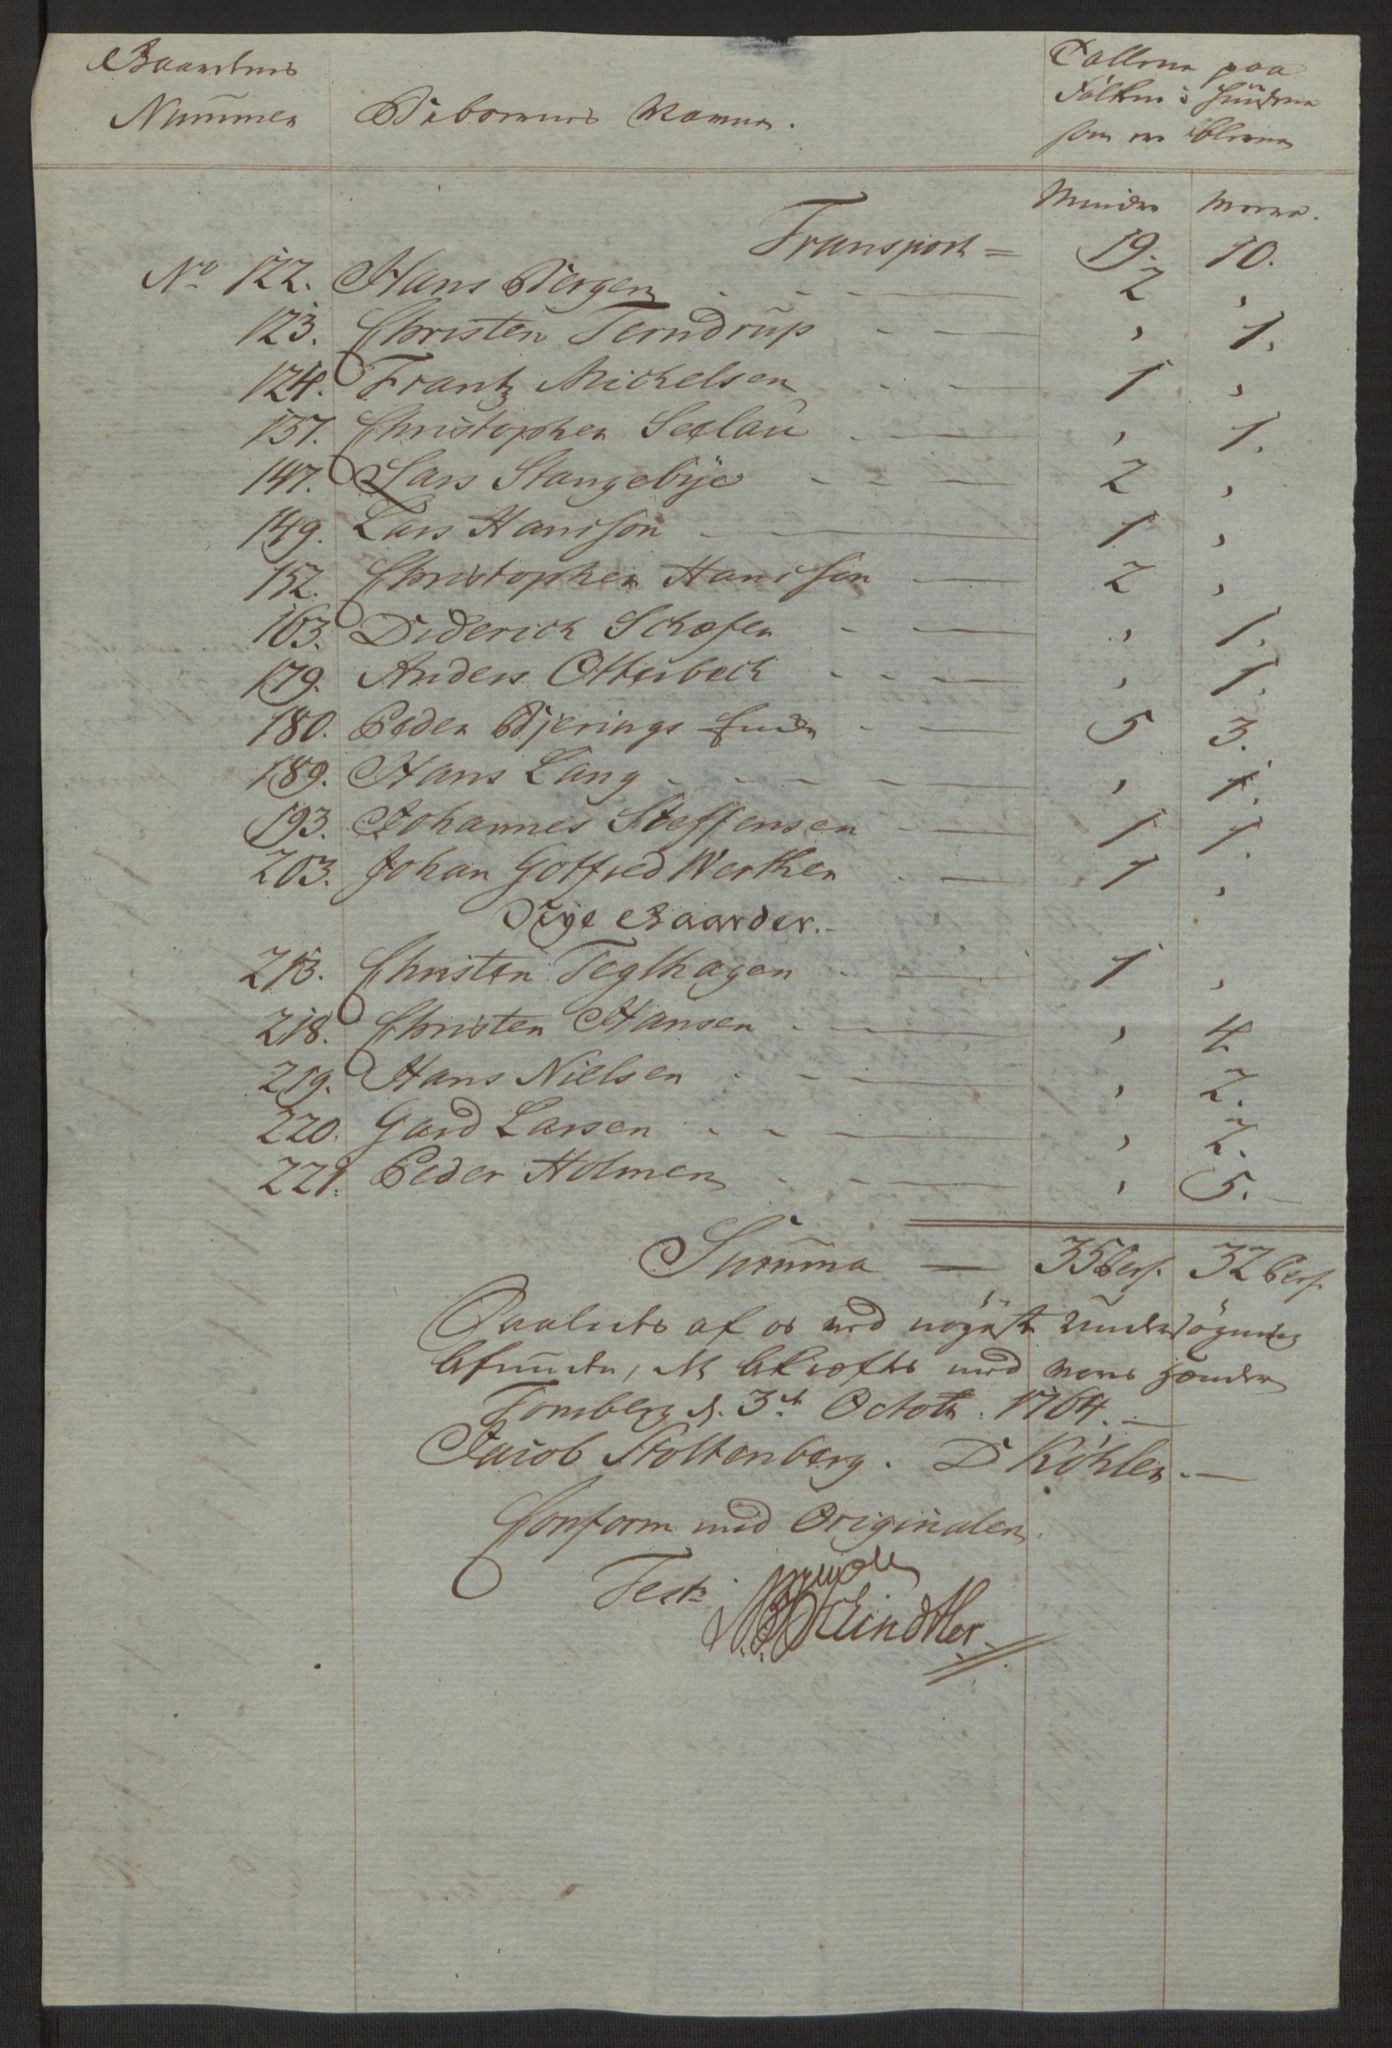 Gaardenes
Nummer
Beboernes Navne.
Tallene paa
Folken i Husene
som ere blevne
Mindre Meere.
Transport = 19. 10.
No 122. Hans Bergen 2 ,
123. Christen Terndrup , 1.
124. Frantz Michelsen 1 ,
137. Christopher Seglau , 1.
147. Lars Stangebÿe 2 ,
149. Lars Hansson 1 ,
152. Christopher Hansson 2 ,
163. Diderich Schæfer , 1.
179. Anders Otterbeck , 1.
180. Peder Bjerings Enke 5 3.
189. Hans Lang , 1.
193. Johannes Steffensen 1 1.
203. Johan Gotfred Werther 1 ,
Nÿe Gaarder.
213. Christen Teglhagen 1 ,
218. Christen Hansen , 4.
219. Hans Nielsen , 2.
220. Gard Larsen , 2.
221. Peder Holmen , 5.
Summa 35 Pers. 32 Pers.
Saaledes af os ved nøÿeste Undersøgning
befunden, et bekræftes med vores Hænder
Tonsberg d. 3de Octobr. 1764.
Jacob Stoltenberg. D Köhler.
Conform med Originalen
Test: